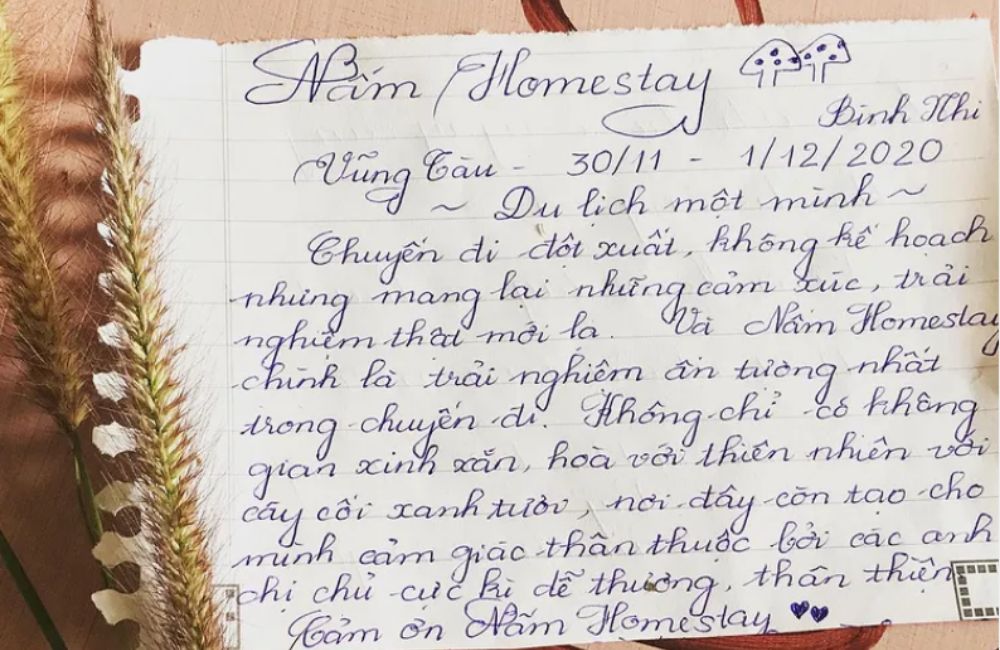 Nấm Homestay
Bình Nhi
Vũng Tàu - 30/11 - 1/12/2020
~ Du lịch một mình ~
Chuyến đi đột xuất, không kế hoạch
nhưng mang lại những cảm xúc, trải
nghiệm thật mới lạ. Và Nấm Homestay
chính là trải nghiệm ấn tượng nhất
trong chuyến đi. Không chỉ có không
gian xinh xắn, hoà với thiên nhiên với
cây cối xanh tươi, nơi đây còn tạo cho
mình cảm giác thân thuộc bởi các anh
chị chủ cực kì dễ thương, thân thiện
Cảm ơn Nấm Homestay